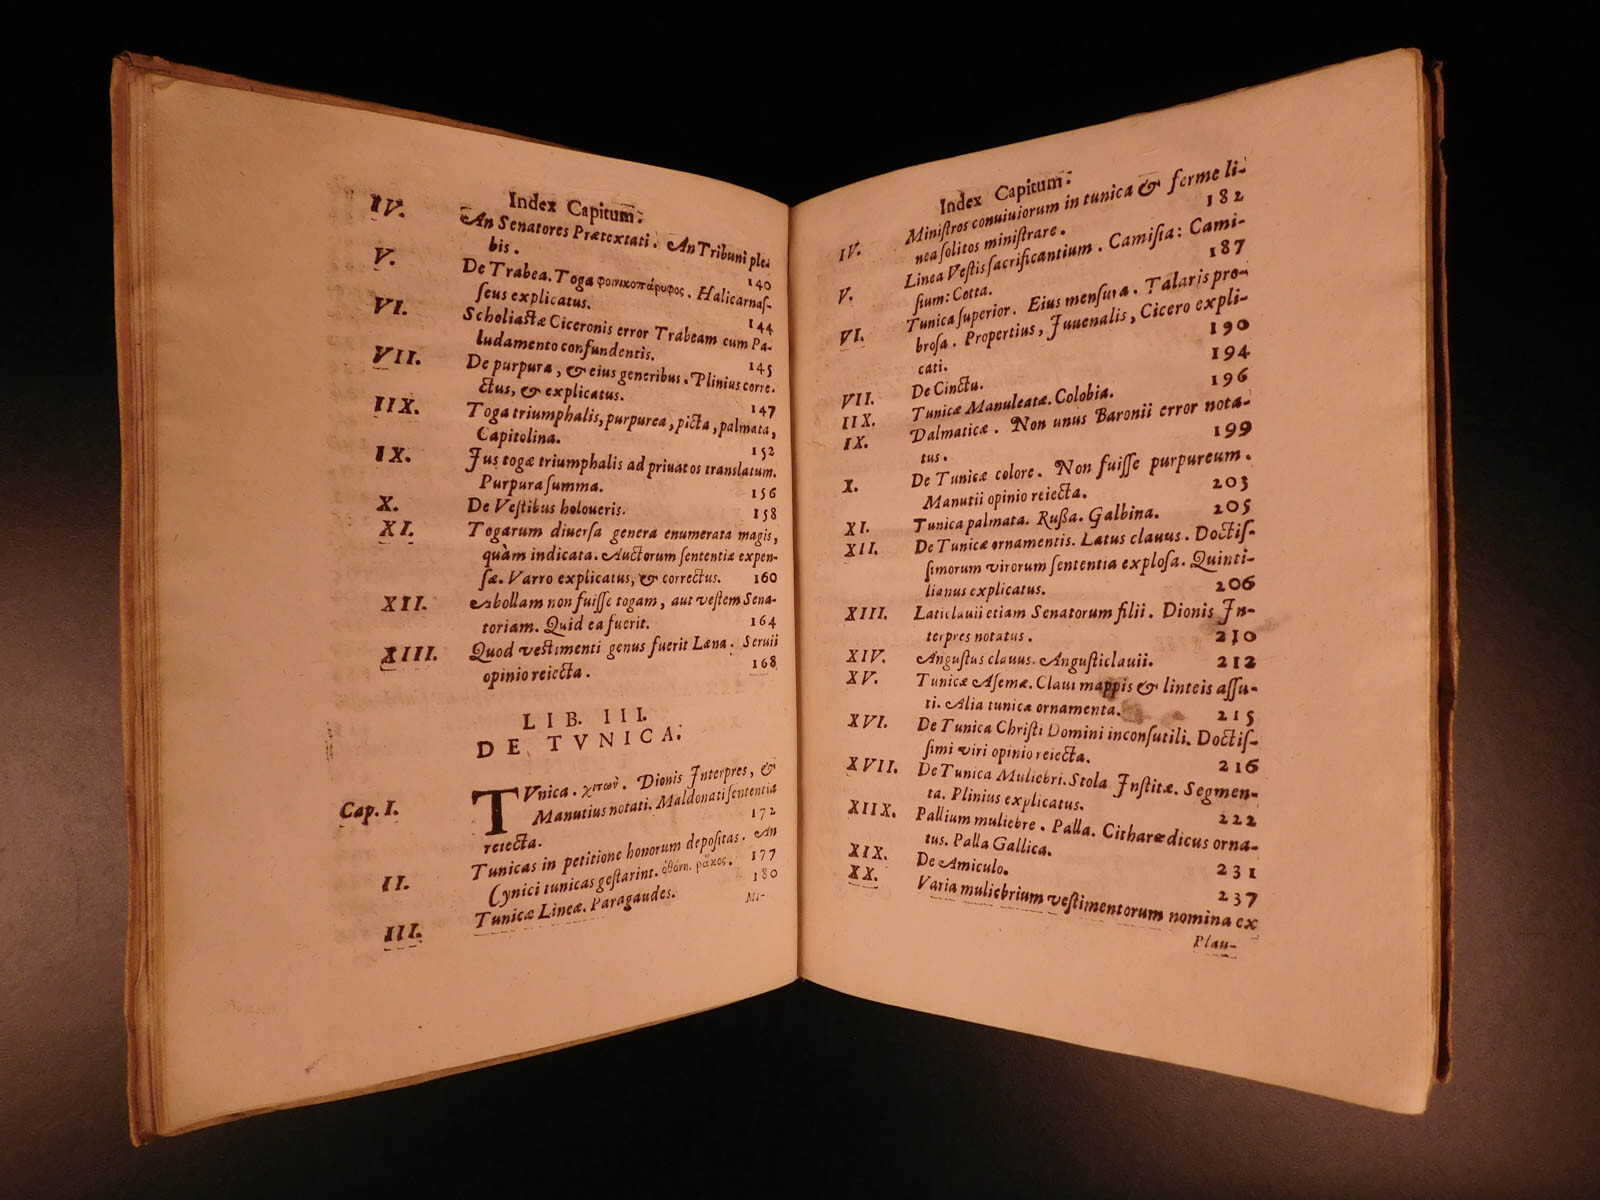 Index Capitum.
IV. An Senatores Prætextati. An Tribuni ple-
bis. 140
V. De Trabea. Toga φοινικοπάρυφος. Halicarnaſ-
ſeus explicatus. 144
VI. Scholiaſtæ Ciceronis error Trabeam cum Pa-
ludamento confundentis. 145
VII. De purpura, & eius generibus. Plinius corre-
ctus, & explicatus. 147
IIX. Toga triumphalis, purpurea, picta, palmata,
Capitolina. 152
IX. Jus togæ triumphalis ad priuatos translatum.
Purpura ſumma. 156
X. De Veſtibus holoueris. 158
XI. Togarum diuerſa genera enumerata magis,
quàm indicata. Auctorum ſententiæ expen-
ſæ. Varro explicatus, & correctus. 160
XII. Abollam non fuiſſe togam, aut veſtem Sena-
toriam. Quid ea fuerit. 164
XIII. Quod veſtimenti genus fuerit Læna. Seruii
opinio reiecta. 168
LIB. III.
DE TVNICA.
Cap. I. TVnica. χιτων. Dionis Interpres, &
Manutius notati. Maldonati ſententia
reiecta. 172
II. Tunicas in petitione honorum depoſitas. An
Cynici tunicas geſtarint. ὀθόνη. ῥάκος. 177
III. Tunicæ Lineæ. Paragaudes. 180
Mi-
Index Capitum.
IV. Miniſtros conuiuiorum in tunica & ferme li-
nea ſolitos miniſtrare. 182
V. Linea Veſtis ſacrificantium. Camiſia: Cami-
ſium: Cotta. 187
VI. Tunica ſuperior. Eius menſura. Talaris pro-
broſa. Propertius, Juuenalis, Cicero expli-
cati. 190
VII. De Cinctu. 194
IIX. Tunicæ Manuleatæ. Colobia. 196
IX. Dalmaticæ. Non unus Baronii error nota-
tus. 199
X. De Tunicæ colore. Non fuiſſe purpureum.
Manutii opinio reiecta. 203
XI. Tunica palmata. Ruſſa. Galbina. 205
XII. De Tunicæ ornamentis. Latus clauus. Doctiſ-
ſimorum virorum ſententia exploſa. Quinti-
lianus explicatus. 206
XIII. Laticlauii etiam Senatorum filii. Dionis In-
terpres notatus. 210
XIV. Anguſtus clauus. Anguſticlauii. 212
XV. Tunicæ Aſemæ. Claui mappis & linteis aſſu-
ti. Alia tunicæ ornamenta. 215
XVI. De Tunica Chriſti Domini inconſutili. Doctiſ-
ſimi viri opinio reiecta. 216
XVII. De Tunica Muliebri. Stola Inſtitæ. Segmen-
ta. Plinius explicatus. 222
XIIX. Pallium muliebre. Palla. Citharœdicus orna-
tus. Palla Gallica. 231
XIX. De Amiculo. 237
XX. Varia muliebrium veſtimentorum nomina ex
Plau-